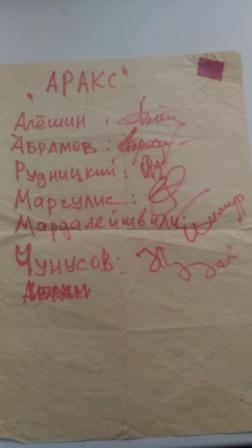 „АРАКС"
Алёшин :
Абрамов :
Рудницкий :
Маргулис :
Мардалейшвили :
Чунусов :